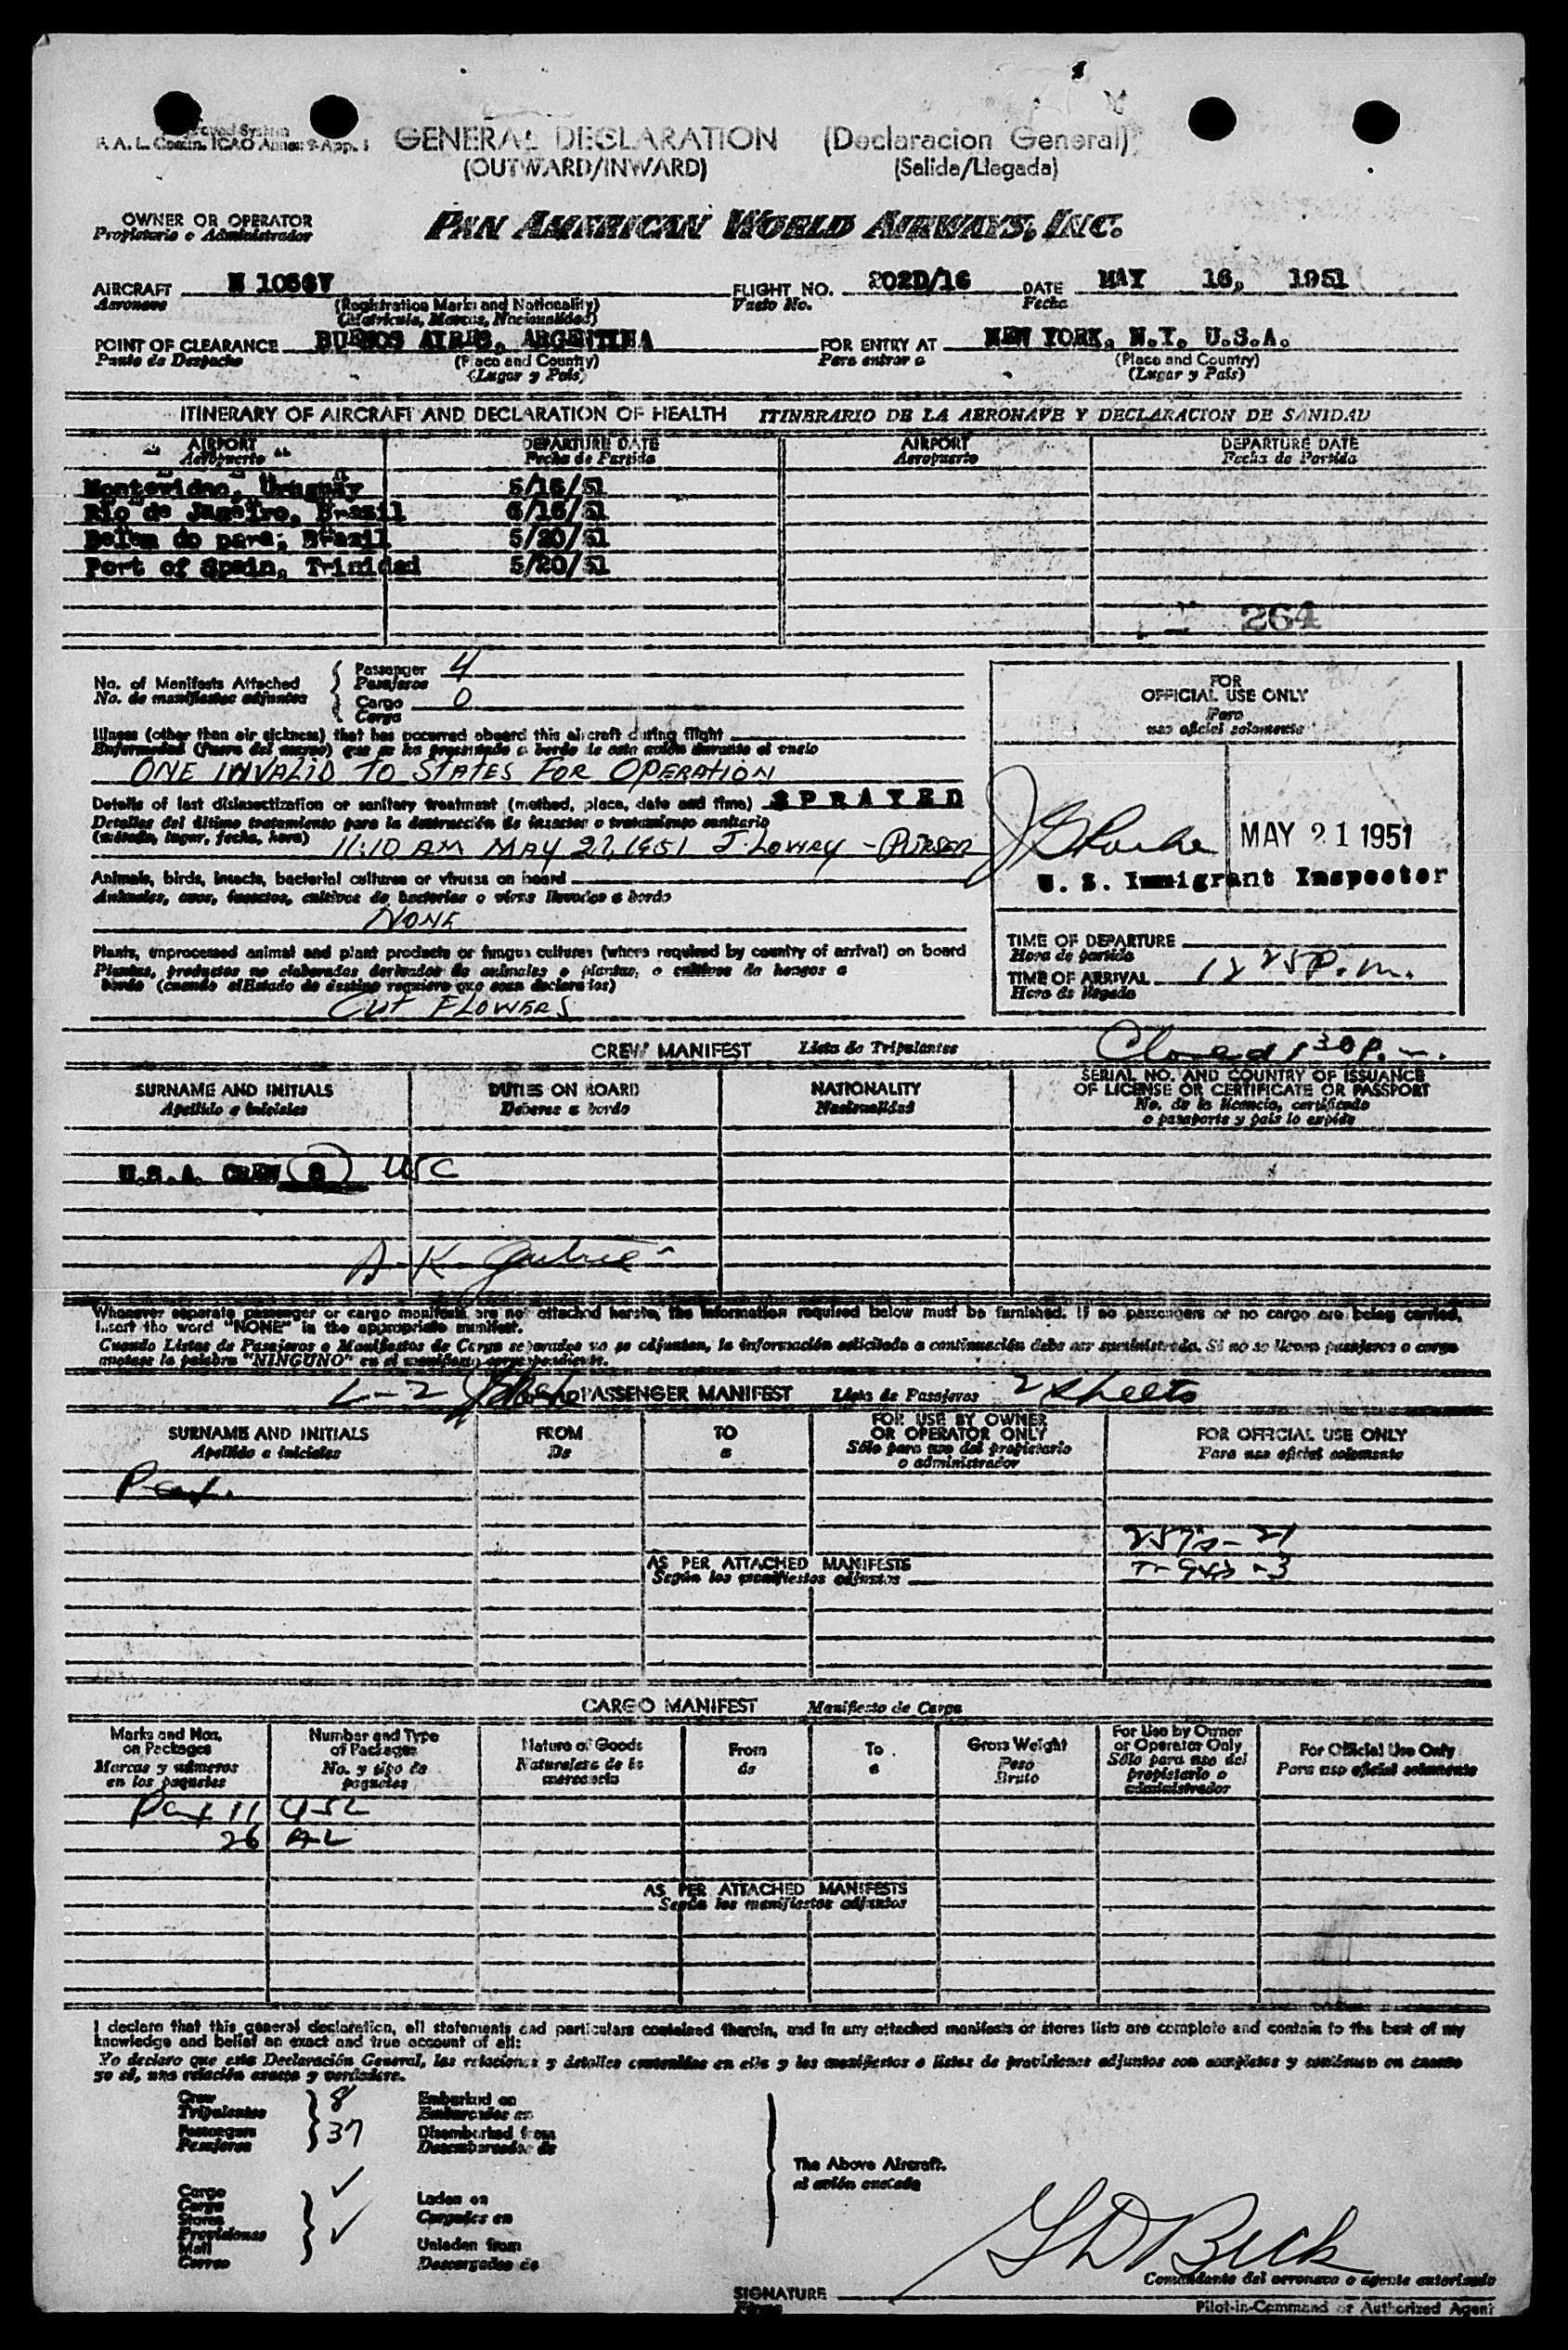 GENERAL DECLARATION (Declaracion General)
F. A. L. Comm. ICAO Annex 9-App. 1
(OUTWARD/INWARD) (Salida/Llegada)
OWNER OR OPERATOR
Propietario o Administrador
PAN AMERICAN WORLD AIRWAYS, INC.
AIRCRAFT N 1036V FLIGHT NO. 202D/16 DATE MAY 16, 1951
Aeronave (Registration Marks and Nationality) Vuelo No. Fecha
(Matricula, Marcas, Nacionalidad)
POINT OF CLEARANCE BUENOS AIRES, ARGENTINA FOR ENTRY AT NEW YORK, N.Y. U.S.A.
Punto de Despacho (Place and Country) Para entrar a (Place and Country)
(Lugar y País) (Lugar y País)
ITINERARY OF AIRCRAFT AND DECLARATION OF HEALTH ITINERARIO DE LA AERONAVE Y DECLARACION DE SANIDAD
AIRPORT DEPARTURE DATE AIRPORT DEPARTURE DATE
Aeropuerto Fecha de Partida Aeropuerto Fecha de Partida
Montevideo, Uruguay 5/16/51
Rio de Janeiro, Brazil 5/16/51
Belem do para, Brazil 5/20/51
Port of Spain, Trinidad 5/20/51
264
No. of Manifests Attached Passenger 4
No. de manifiestos adjuntos Pasajeros
Cargo 0
Carga
FOR
OFFICIAL USE ONLY
Para
uso oficial solamente
Illness (other than air sickness) that has occurred aboard this aircraft during flight
Enfermedad (fuera del mareo) que se ha presentado a bordo de este avión durante el vuelo
ONE INVALID TO STATES FOR OPERATION
Details of last disinsectization or sanitary treatment (method, place, date and time) SPRAYED
Detalles del último tratamiento para la destrucción de insectos o tratamiento sanitario
(método, lugar, fecha, hora) 11:10 AM MAY 21, 1951 J. LOWRY - PURSER
MAY 21 1951
U. S. Immigrant Inspector
Animals, birds, insects, bacterial cultures or viruses on board
Animales, aves, insectos, cultivos de bacterias o virus llevados a bordo
NONE
Plants, unprocessed animal and plant products or fungus cultures (where required by country of arrival) on board
Plantas, productos no elaborados derivados de animales o plantas, o cultivos de hongos a
bordo (cuando el Estado de destino requiere que sean declarados)
CUT FLOWERS
TIME OF DEPARTURE
Hora de partida
TIME OF ARRIVAL 12 25 P.m.
Hora de llegada
CREW MANIFEST Lista de Tripulantes Closed 1 30 P.m.
SURNAME AND INITIALS DUTIES ON BOARD NATIONALITY SERIAL NO. AND COUNTRY OF ISSUANCE
Apellido e iniciales Deberes a bordo Nacionalidad OF LICENSE OR CERTIFICATE OR PASSPORT
No. de la licencia, certificado
o pasaporte y país lo expide
U.S.A. CREW (8) USC
A K
Whenever separate passenger or cargo manifests are not attached hereto, the information required below must be furnished. If no passengers or no cargo are being carried,
insert the word "NONE" in the appropriate manifest.
Cuando Listas de Pasajeros o Manifiestos de Carga separados no se adjuntan, la información solicitada a continuación debe ser suministrada. Si no se llevan pasajeros o carga
anotese la palabra "NINGUNO" en el manifiesto correspondiente.
L-2 PASSENGER MANIFEST Lista de Pasajeros 2 sheets
SURNAME AND INITIALS FROM TO FOR USE BY OWNER FOR OFFICIAL USE ONLY
Apellido e iniciales De a OR OPERATOR ONLY Para uso oficial solamente
Sólo para uso del propietario
o administrador
Pax.
AS PER ATTACHED MANIFESTS
Según los manifiestos adjuntos
CARGO MANIFEST Manifiesto de Carga
Marks and Nos. Number and Type Nature of Goods From To Gross Weight For Use by Owner For Official Use Only
on Packages of Packages Naturaleza de la de a Peso or Operator Only Para uso oficial solamente
Marcas y números No. y tipo de mercancía Bruto Sólo para uso del
en los paquetes paquetes propietario o
administrador
Pax 11
26
AS PER ATTACHED MANIFESTS
Según los manifiestos adjuntos
I declare that this general declaration, all statements and particulars contained therein, and in any attached manifests or stores lists are complete and contain to the best of my
knowledge and belief an exact and true account of all:
Yo declaro que esta Declaración General, las relaciones y detalles contenidos en ella y los manifiestos o listas de provisiones adjuntos son completos y contienen en cuanto
yo sé, una relación exacta y verdadera.
Crew 8 Embarked on
Tripulantes Embarcados en
Passengers 37 Disembarked from
Pasajeros Desembarcados de
The Above Aircraft.
al avión
Cargo Laden on
Carga Cargados en
Stores
Provisiones
Mail Unladen from
Correo Descargados de
SIGNATURE
Firma
Comandante del aeronave o agente autorizado
Pilot-in-Command or Authorized Agent